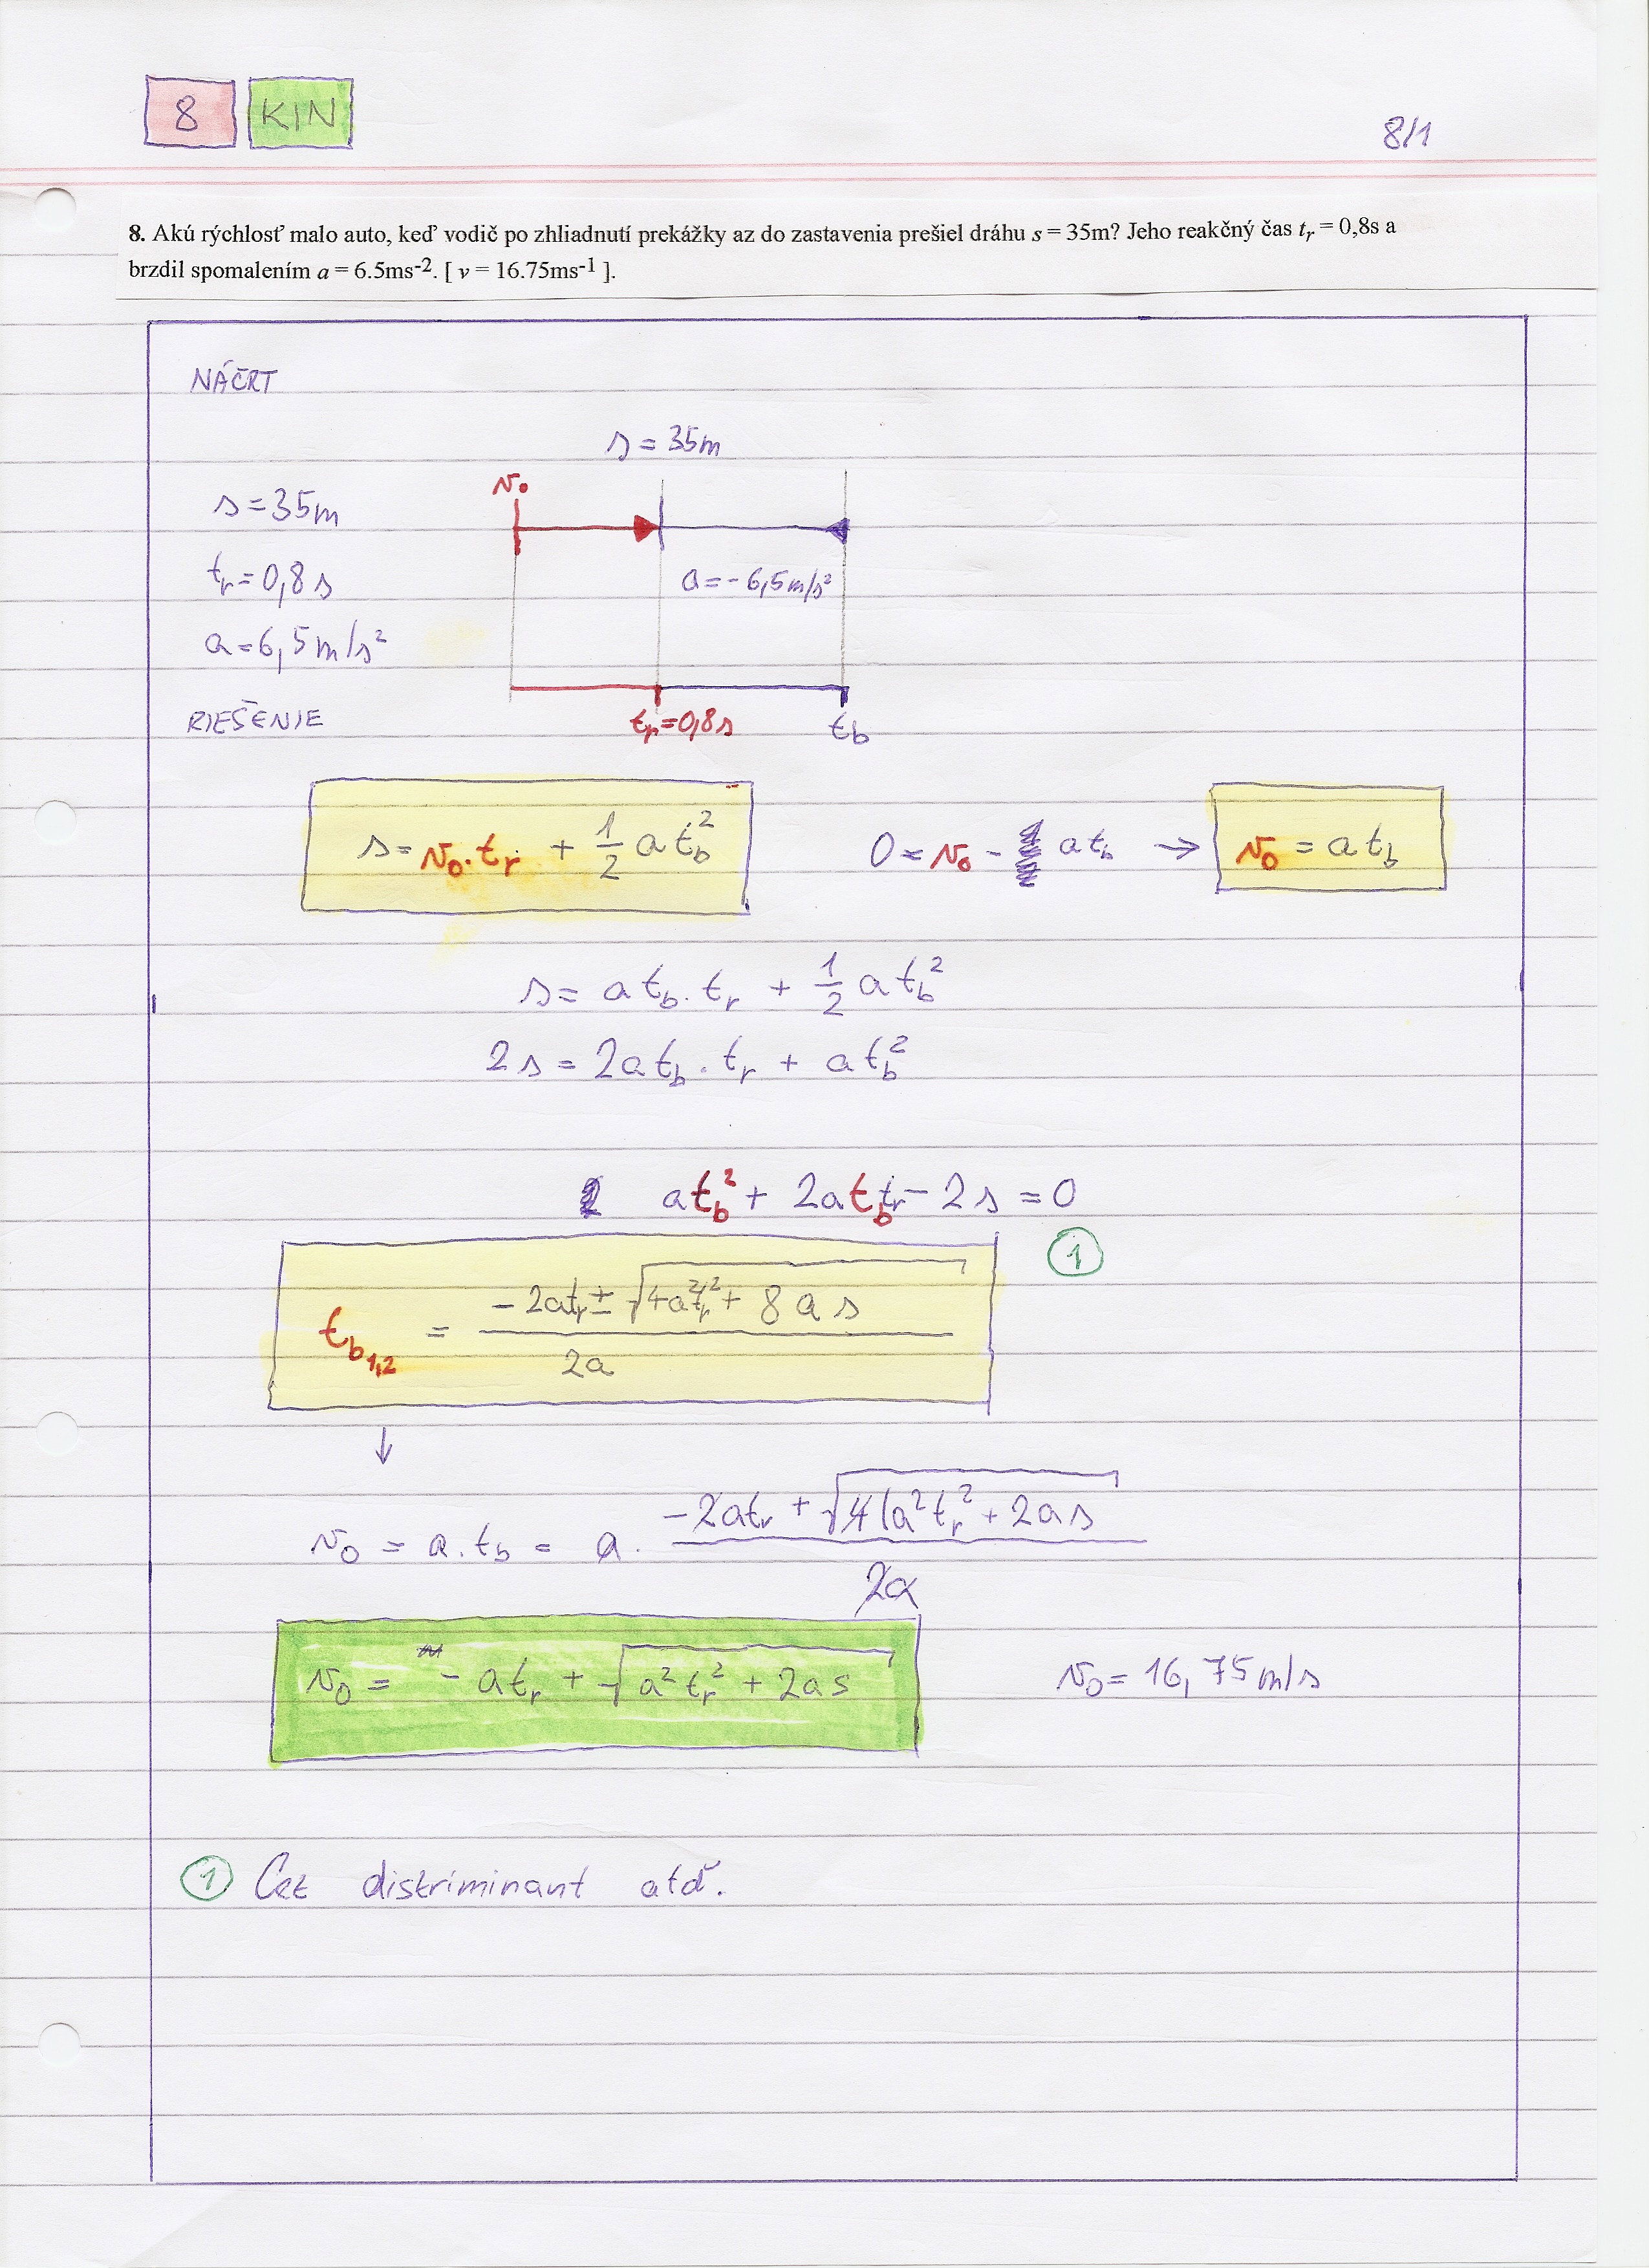 8 KIN
8/1
8. Akú rýchlosť malo auto, keď vodič po zhliadnutí prekážky az do zastavenia prešiel dráhu s = 35m? Jeho reakčný čas tᵣ = 0,8s a
brzdil spomalením a = 6.5ms⁻². [ v = 16.75ms⁻¹ ].
NÁČRT
s = 35m
v₀
s = 35m
tᵣ = 0,8 s
a = -6,5 m/s²
a = 6,5 m/s²
RIEŠENIE
tᵣ = 0,8 s
t_b
s = v₀ . tᵣ + 1/2 a t_b²
0 = v₀ - a t_b → v₀ = a t_b
s = a t_b . tᵣ + 1/2 a t_b²
2s = 2a t_b . tᵣ + a t_b²
a t_b² + 2a t_b tᵣ - 2s = 0
①
t_b1,2 = (-2atᵣ ± √(4a²tᵣ² + 8as)) / 2a
↓
v₀ = a . t_b = a . (-2atᵣ + √(4(a²tᵣ² + 2as)) / 2a
v₀ = - atᵣ + √(a²tᵣ² + 2as)
v₀ = 16,75 m/s
① Cez diskriminant atď.